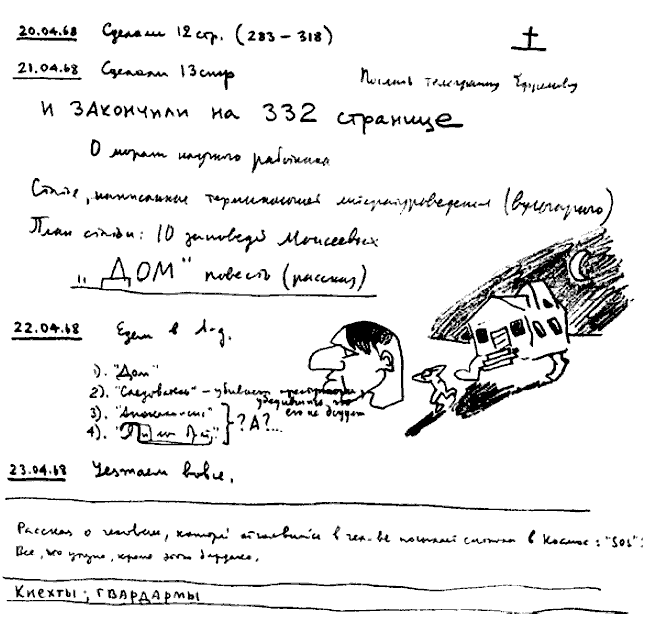 20.04.68 Сделали 12 стр. (283 – 318)
21.04.68 Сделали 13 стр
Послать телеграмму Ефремову
И ЗАКОНЧИЛИ на 332 странице
О морали научного работника
Статья, написанная терминологией литературоведения (вульгарного)
План статьи: 10 заповедей Моисеевых
"ДОМ" повесть (рассказ)
22.04.68 Едем в Л-д.
1). "Дом"
2). "Следователь" – убивает преступника, убедившись, что его не осудят
3).
4).
? А?...
23.04.68 Уезжаем вовсе.
Рассказ о человеке, который отчаявшись в чел-ве посылает сигналы в Космос: "SOS":
Все, что угодно, кроме этого бардака.
Кнехты; ГВАРДАРМЫ